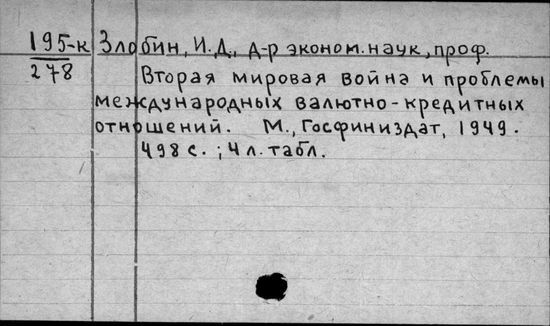 195-к Злобин, И.Д., д-р эконом. наук, проф.
278
Вторая мировая война и проблемы
международных валютно-кредитных
отношений. М., Госфиниздат, 1949.
498 с.; 4 л. табл.